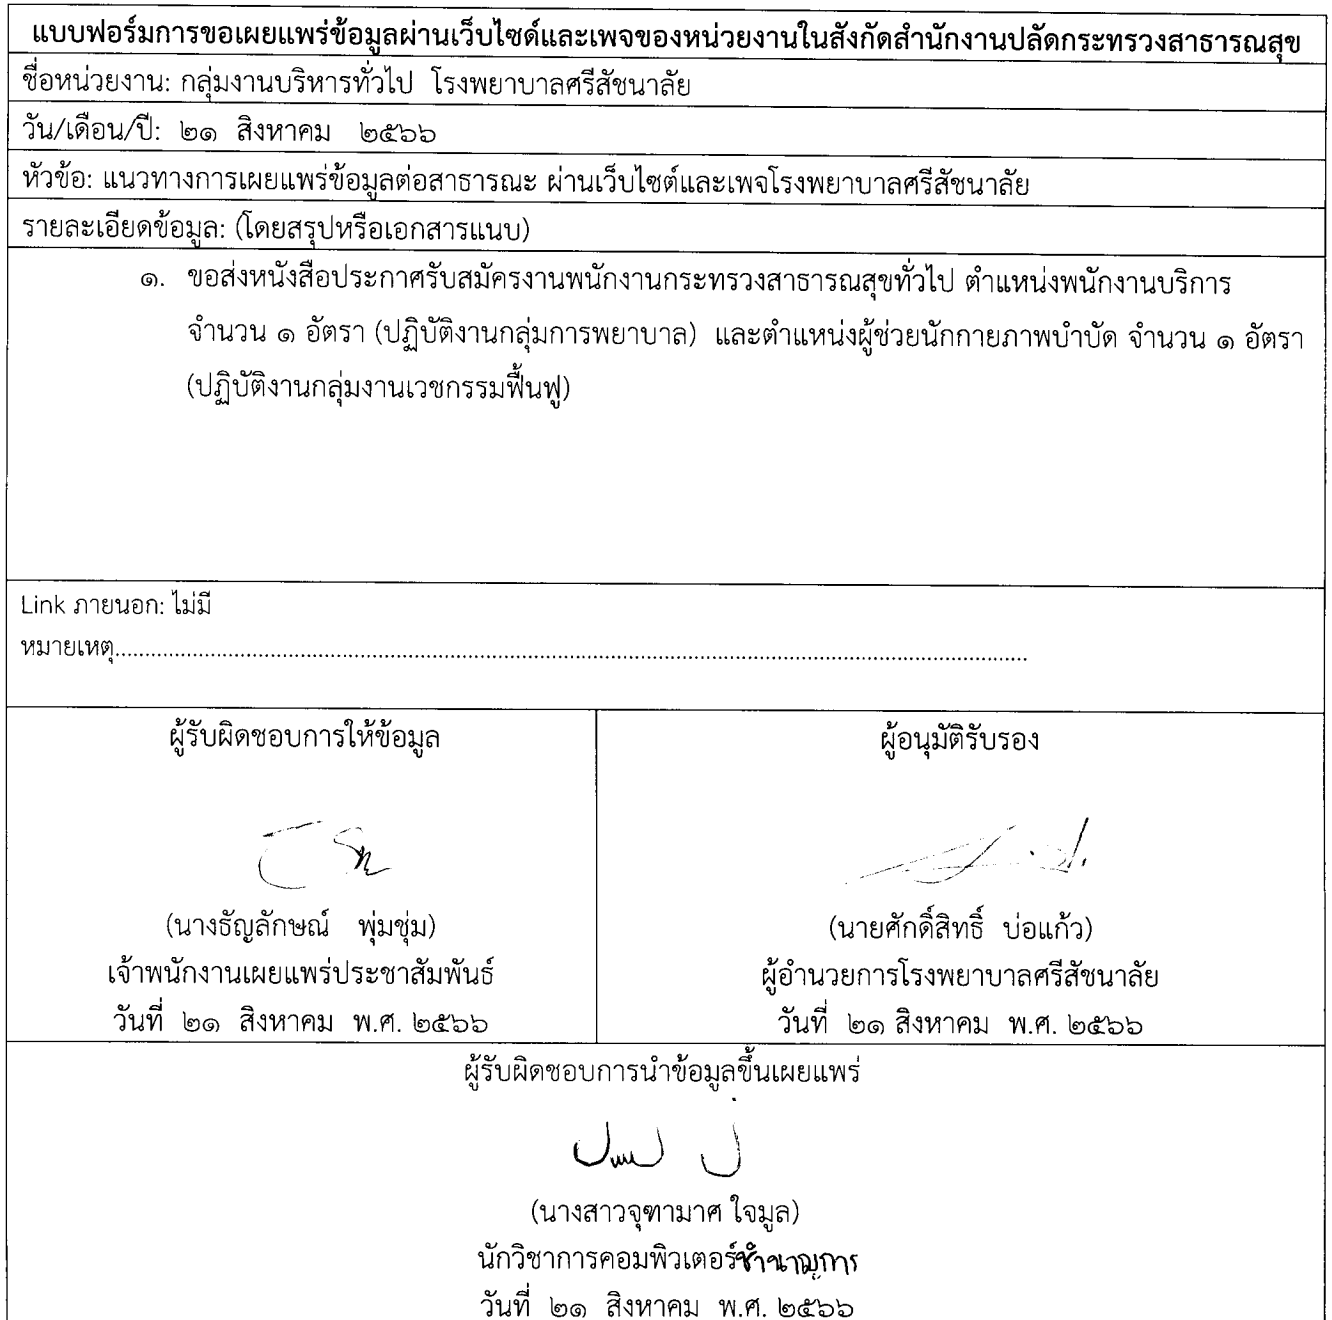 แบบฟอร์มการขอเผยแพร่ข้อมูลผ่านเว็บไซต์และเพจของหน่วยงานในสังกัดสำนักงานปลัดกระทรวงสาธารณสุข
ชื่อหน่วยงาน: กลุ่มงานบริหารทั่วไป โรงพยาบาลศรีสัชนาลัย
วัน/เดือน/ปี: ๒๑ สิงหาคม ๒๕๖๖
หัวข้อ: แนวทางการเผยแพร่ข้อมูลต่อสาธารณะ ผ่านเว็บไซต์และเพจโรงพยาบาลศรีสัชนาลัย
รายละเอียดข้อมูล: (โดยสรุปหรือเอกสารแนบ)
๑. ขอส่งหนังสือประกาศรับสมัครงานพนักงานกระทรวงสาธารณสุขทั่วไป ตำแหน่งพนักงานบริการ
จำนวน ๑ อัตรา (ปฏิบัติงานกลุ่มการพยาบาล) และตำแหน่งผู้ช่วยนักกายภาพบำบัด จำนวน ๑ อัตรา
(ปฏิบัติงานกลุ่มงานเวชกรรมฟื้นฟู)
Link ภายนอก: ไม่มี
หมายเหตุ..........................................................................................................................................................
ผู้รับผิดชอบการให้ข้อมูล
(นางธัญลักษณ์ พุ่มชุ่ม)
เจ้าพนักงานเผยแพร่ประชาสัมพันธ์
วันที่ ๒๑ สิงหาคม พ.ศ. ๒๕๖๖
ผู้อนุมัติรับรอง
(นายศักดิ์สิทธิ์ บ่อแก้ว)
ผู้อำนวยการโรงพยาบาลศรีสัชนาลัย
วันที่ ๒๑ สิงหาคม พ.ศ. ๒๕๖๖
ผู้รับผิดชอบการนำข้อมูลขึ้นเผยแพร่
(นางสาวจุฑามาศ ใจมูล)
นักวิชาการคอมพิวเตอร์ชำนาญการ
วันที่ ๒๑ สิงหาคม พ.ศ. ๒๕๖๖